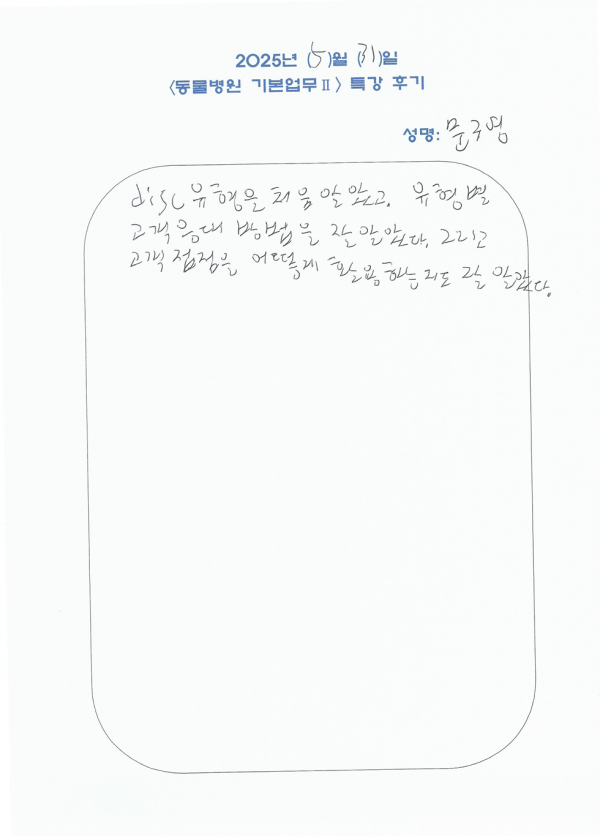 2025년 (5)월 (31)일
<동물병원 기본업무Ⅱ> 특강 후기
성명: 문구영
disc유형을 처음 알았고, 유형별
고객응대 방법을 잘 알았다. 그리고
고객접점을 어떻게 활용하는지도 잘 알았다.